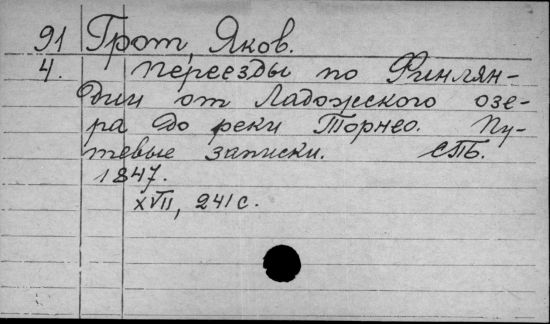 91 Грот, Яков.
4. Переезды по Финлян-
дии от Ладожского озе-
ра до реки Торнео. Пу-
тевые записки. СПБ.
1847.
XVII, 241 с.